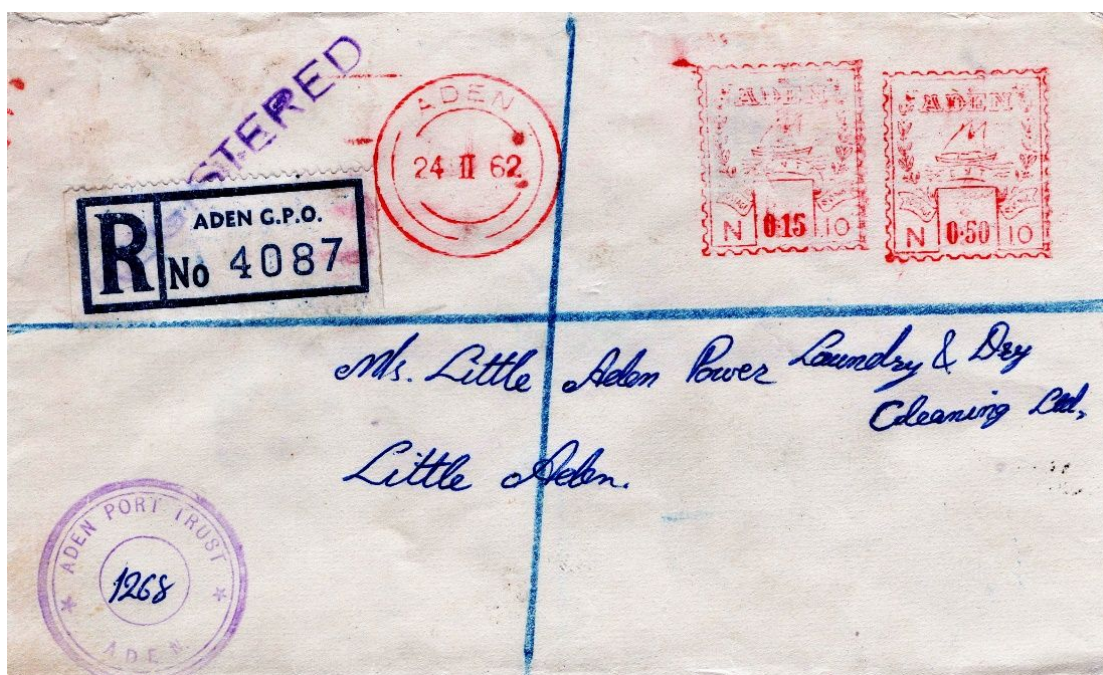 REGISTERED
ADEN
24 II 62
ADEN
N 0·15 10
ADEN
N 0·50 10
R
ADEN G.P.O.
No 4087
M/s. Little Aden Power Laundry & Dry
Cleaning Ltd,
Little Aden.
ADEN PORT TRUST
1268
ADEN